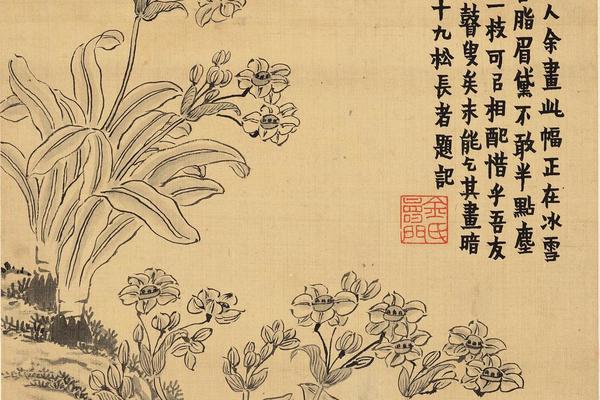 人余畫此幅正在冰雪
脂眉黛不敢半點塵
一枝可㠯相配惜乎吾友
瞽叟矣未能乞其畫暗
十九松長者題記
金氏壽門